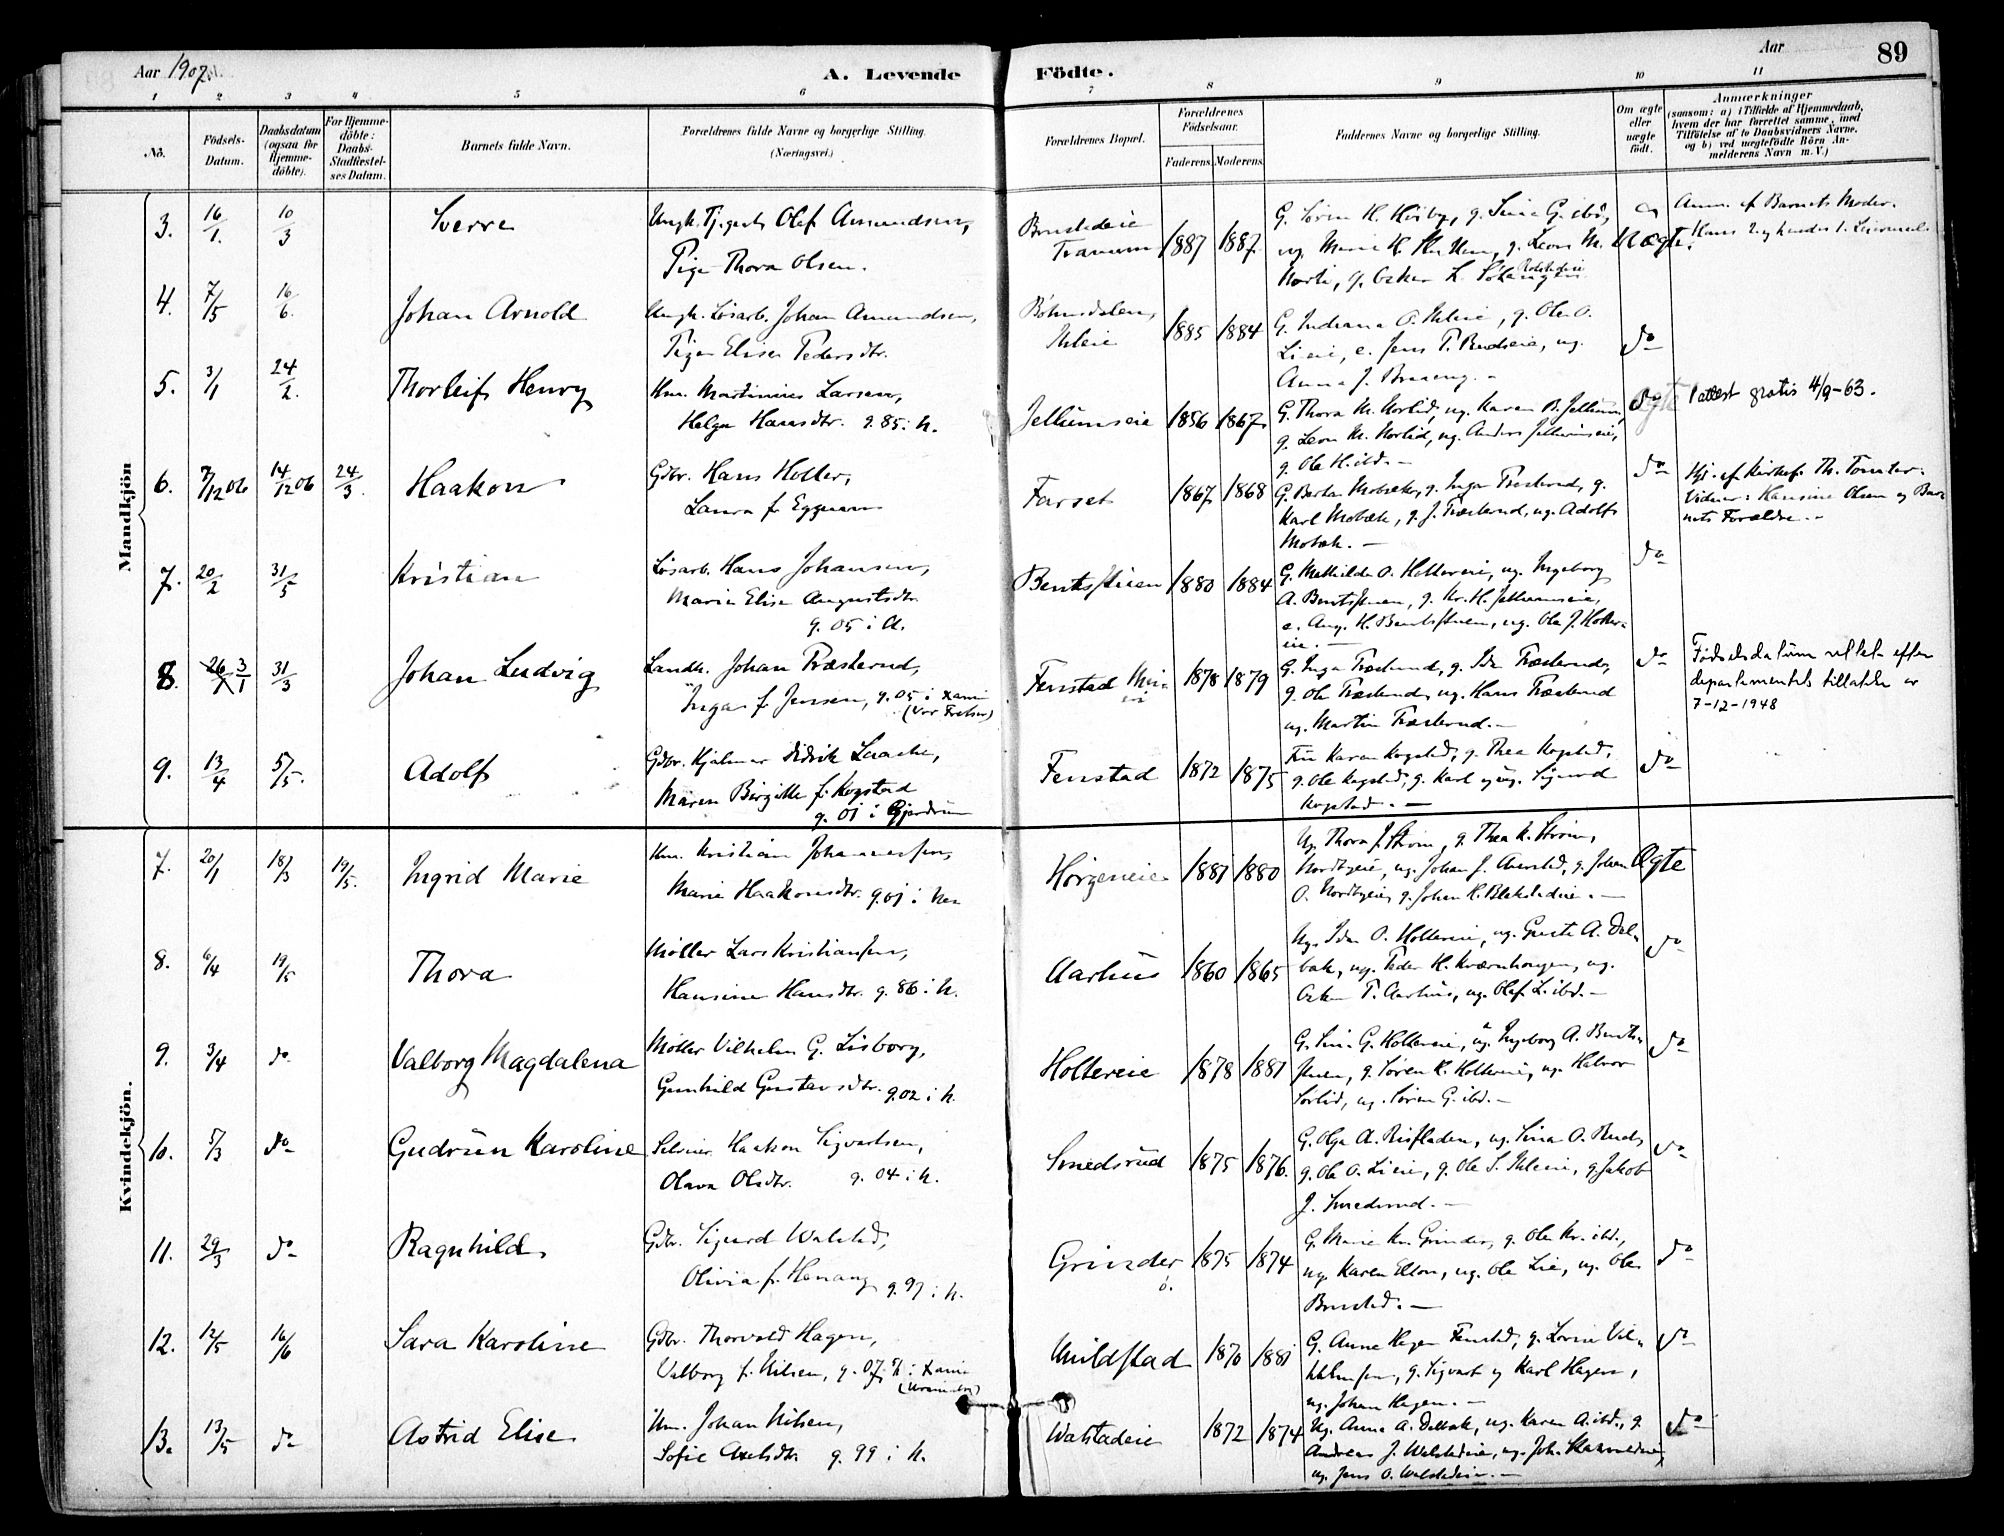 Aar 1907.
A. Levende
Födte.
Aar
89
1 2 3 4 5 6 7 8 9 10 11
No.
Födsels-
Datum.
Daabsdatum
(ogsaa for
Hjemme-
döbte).
For Hjemme-
döbte:
Daabs-
Stadfæstel-
ses Datum.
Barnets fulde Navn.
Forældrenes fulde Navne og borgerlige Stilling.
(Næringsvei.)
Forældrenes Bopæl.
Forældrenes
Födselsaar.
Faderens. Moderens.
Faddernes Navne og borgerlige Stilling.
Om ægte
eller
uægte
födt.
Anmærkninger
(saasom: a) i Tilfælde af Hjemmedaab,
hvem der har forrettet samme, med
Tilföielse af to Daabsvidners Navne,
og b) ved uægtefödte Börn An-
melderens Navn m. V.)
Mandkjön
3. 16/1. 10/3 Sverre
Ungk. Tj.gut Olaf Amundsen,
Pige Thora Olsen.
1887 1887.
Uægte.
Anm. af Barnets Moder.
4. 7/5 16/6. Johan Arnold
Ungk. Løsarb. Johan Amundsen,
Pige Elise Pedersdtr.
1885 1884
do
Anna J. Braaeng. -
5. 3/1 24/2. Thorleif Henry
Hm. Martinius Larsen,
Helga Hansdtr. g. 85 i N.
Jellumseie 1856 1867
G. Thora M. Horlid, ug. Karen B. Jellum,
g. Leon M. Horlid, ug. Anders Jellumseie,
g. Ole H. ibd. -
Ægte
1 attest gratis 4/9-63.
6. 7/12 06 14/12 06 24/3. Haakon
Gdbr. Hans Holler,
Laura f. Eggum
Farset 1867 1868
Karl Mobæk, g. J. Træsterud, ug. Adolf
Mobæk. -
do
Hj. af Kirkes. Th. Tomter.
Vidner: Hansine Olsen og Bar-
nets Forældre. -
7. 20/2 31/5 Kristian
Løsarb. Hans Johansen,
Marie Elise Augustsdtr.
g. 05 i N.
Bentsstuen 1880 1884
G. Mathilde O. Holtereie, ug. Ingeborg
A. Bentsstuen, g. Kr. H. Jellumseie,
e. Aug. H. Bentsstuen, ug. Ole J. Holter-
eie. -
do
8. 26/1 3/1 31/3 Johan Ludvig
Landh. Johan Træsterud,
Inga f. Jensen, g. 05 i Xania
(Vor Frelser)
Fenstad 1878 1879
G. Inga Træsterud, g. Ida Træsterud,
g. Ole Træsterud, ug. Hans Træsterud
ug. Martin Træsterud. -
do
Fødselsdatum rettet efter
departementets tillatelse av
7-12-1948
9. 13/4 5/5. Adolf
Gdbr. Hjalmar Didrik Laache,
Maren Birgitte f. Kogstad
g. 01 i Gjerdrum
Fenstad 1872 1875
Fru Karen Kogstad, g. Thea Kogstad,
g. Ole Kogstad, g. Karl og ug. Sigurd
Kogstad. -
do
Kvindekjön.
7. 20/1 18/3 19/5. Ingrid Marie
Hm. Kristian Johannessen,
Marie Haakonsdtr. g. 01 i Nes
Hörgeneie 1881 1880
Ug. Thora J. Strøm, g. Thea K. Strøm,
Nordbyeie, ug. Johan J. Aurstad, g. Johan
O. Nordbyeie, g. Johan K. Blekstadeie. -
Ægte
8. 6/4 19/5 Thora
Møller Lars Kristiansen,
Hansine Hansdtr. g. 86 i N.
Aarhus 1860 1865
Ug. Ida O. Holtereie, ug. Guste A. Dal-
bak, ug. Peder H. Kværnhaugen, ug.
Oskar P. Aarhus, ug. Olaf L. ibd. -
do
9. 3/4 do. Valborg Magdalena
Møller Vilhelm G. Lisborg,
Gunhild Gustavsdtr. g. 02 i N.
Holtereie 1878 1881
G. Lina G. Holtereie, ug. Ingeborg A. Bents-
stuen, g. Søren K. Holtereie, ug. Halvor
Sørlid, ug. Søren G. ibd. -
do
10. 5/3 do Gudrun Karoline
Selveier Haakon Sigvartsen,
Olava Olsdtr. g. 04 i N.
Smedsrud 1875 1876.
G. Olga A. Risfladen, ug. Lina O. Rud,
g. Ole O. Lieie, g. Ole S. Ihleie, g. Jakob
J. Smedsrud. -
do
11. 29/3 do Ragnhild
Gdbr. Sigurd Walstad,
Olivia f. Henaug g. 97 i N.
Grinder ö. 1875 1874
G. Marie Kr. Grinder, g. Ole Kr. ibd.,
ug. Karen Elton, ug. Ole Lie, ug. Ole
Brustad. -
do
12. 12/5 16/6 Sara Karoline
Gdbr. Thorvald Hagen,
Valborg f. Nilsen, g. 07 i Xania
Uildstad 1870 1881
G. Anne Hagen Fenstad, g. Lovise Vil-
helmsen, g. Sigvart og Karl Hagen,
ug. Johan Hagen. -
do
13. 13/5 do Astrid Elise
Hm. Johan Nilsen,
Sofie Axelsdtr. g. 99 i N.
Walstadeie 1872 1874
Ug. Anna A. Dalbak, ug. Karen A. ibd., g.
Andreas J. Walstadeie, ug. Joh.
ug. Jens O. Walstadeie. -
do